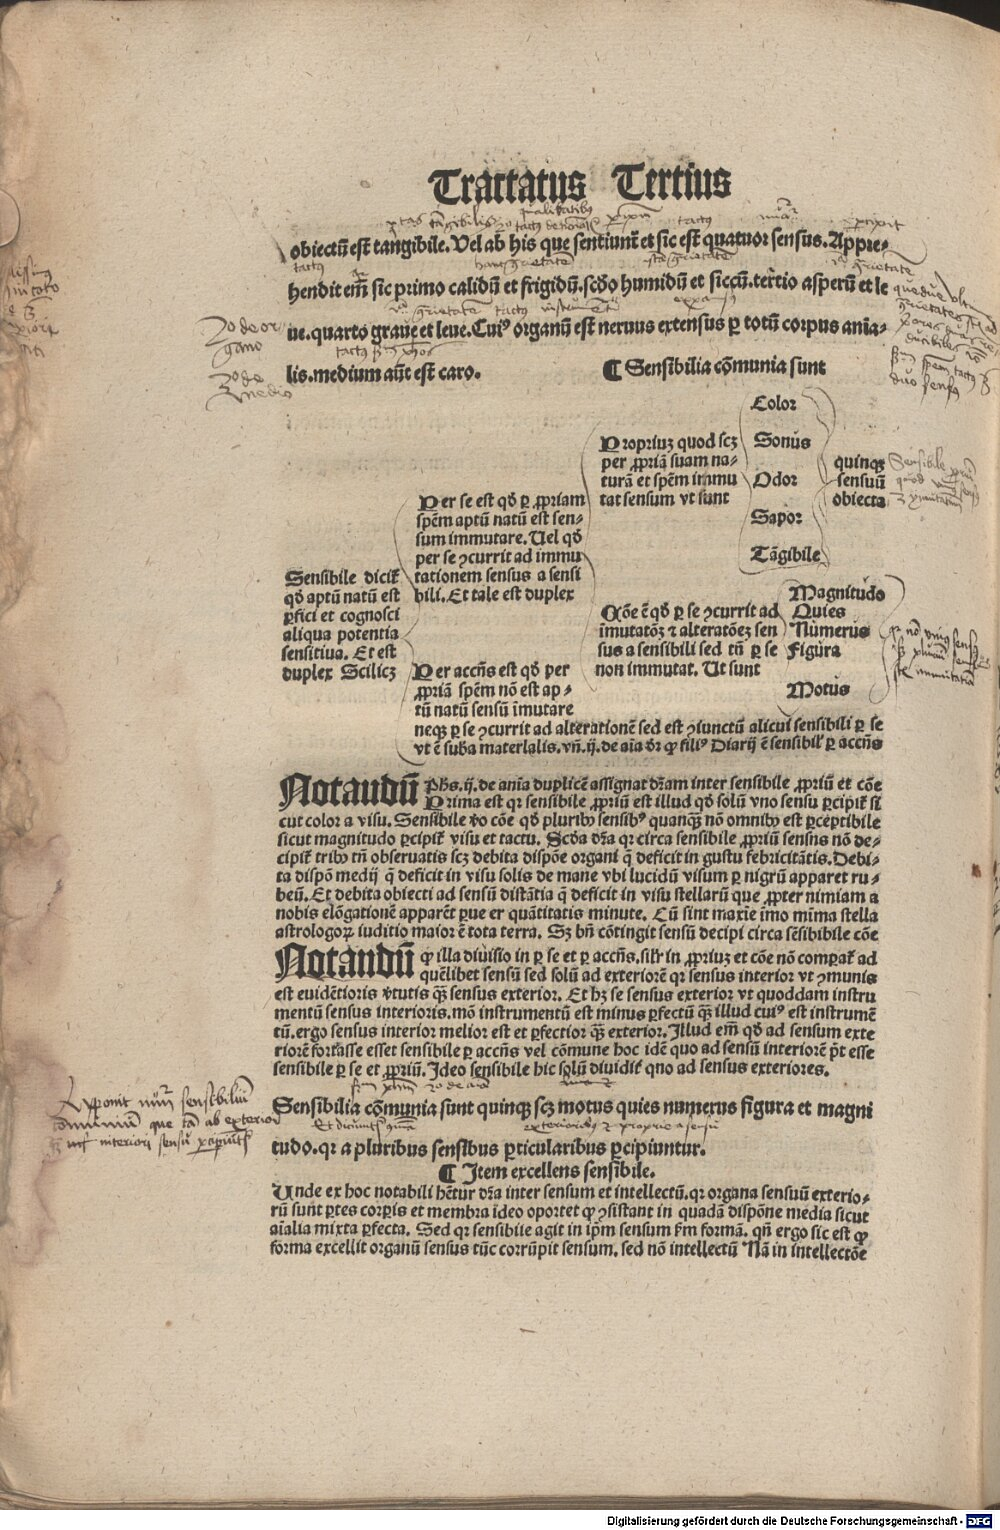 Tractatus Tertius
obiectū est tangibile. Vel ab his que sentiunt et sic est quatuor sensus. Appre-
hendit em̄ sic primo calidū et frigidū. scd̄o humidū et siccū. tertio asperū et le
ue. quarto graue et leue. Cuiꝰ organū est neruus extensus ꝑ totū corpus ania-
lis. medium aūt est caro.
¶ Sensibilia cōmunia sunt
Sensibile dicit̄
qd̄ aptū natū est
ꝑfici et cognosci
aliqua potentia
sensitiua. Et est
duplex Scilicꝫ
Per se est qd̄ ꝑ ꝓpriam
spēm aptū natū est sen-
sum immutare. Uel qd̄
per se ꝯcurrit ad immu
tationem sensus a sensi
bili. Et tale est duplex
Propriuꝫ quod scꝫ
per ꝓpriā suam na-
turā et spēm immu
tat sensum vt sunt
Color
Sonus
Odor
Sapor
Tāgibile
quinqꝫ
sensuū
obiecta
Cōe ē qd̄ ꝑ se ꝯcurrit ad
īmutatōꝫ ⁊ alteratōeꝫ sen
sus a sensibili sed tn̄ ꝑ se
non immutat. Ut sunt
Magnitudo
Quies
Numerus
Figura
Motus
Per accn̄s est qd̄ per
ꝓpriā spēm nō est ap-
tū natū sensū īmutare
neqꝫ ꝑ se ꝯcurrit ad alterationē sed est ꝯiunctū alicui sensibili ꝑ se
vt ē suba materialis. vn̄. ij. de aīa dr̄ ꝙ filiꝰ Diarij ē sensibil' ꝑ accn̄s
Notandū Ph̄s. ij. de anīa duplicē assignat dr̄am inter sensibile ꝓpriū et cōe
Prima est qr sensibile ꝓpriū est illud qd̄ solū vno sensu ꝑcipit̄ si
cut color a visu. Sensibile v̄o cōe qd̄ pluribꝰ sensibꝰ quanqꝫ nō omnibꝰ est ꝑceptibile
sicut magnitudo ꝑcipit̄ visu et tactu. Scd̄a dr̄a qr circa sensibile ꝓpriū sensns nō de-
cipit̄ tribꝰ tn̄ obseruatis scꝫ debita dispōne organi q̄ deficit in gustu febricitātis. Debi-
ta dispō medij q̄ deficit in visu solis de mane vbi lucidū visum ꝑ nigrū apparet ru-
beū. Et debita obiecti ad sensū distātia q̄ deficit in visu stellarū que ꝓpter nimiam a
nobis elōgationē apparēt ꝑue et quātitatis minute. Cū sint maxīe īmo mīma stella
astrologoꝝ iuditio maior ē tota terra. Sꝫ bn̄ cōtingit sensū decipi circa sēsibibile cōe
Notandū ꝙ illa diuisio in ꝑ se et ꝑ accn̄s. silr̄ in ꝓpriuꝫ et cōe nō compat̄ ad
quēlibet sensū sed solū ad exteriorē qr sensus interior vt ꝯmunis
est euidētioris v̄tutis qꝫ sensus exterior. Et hꝫ se sensus exterior vt quoddam instru
mentū sensus interioris. mō instrumentū est minus ꝑfectū qꝫ illud cuiꝰ est instrumē
tū. ergo sensus interior melior est et ꝑfectior qꝫ exterior. Illud em̄ qd̄ ad sensum exte
riorē fortasse esset sensibile ꝑ accn̄s vel cōmune hoc idē quo ad sensū interiorē pt̄ esse
sensibile ꝑ se et ꝓpriū. Ideo sensibile hic solū diuidit̄ qno ad sensus exteriores.
Sensibilia cōmunia sunt quinqꝫ scꝫ motus quies numerus figura et magni
tudo. qr a pluribus sensibus ꝑticularibus ꝑcipiuntur.
¶ Item excellens sensibile.
Unde ex hoc notabili hētur dr̄a inter sensum et intellectū. qr organa sensuū exterio-
rū sunt ꝑtes corꝑis et membra ideo oportet ꝙ ꝯsistant in quadā dispōne media sicut
aīalia mixta ꝑfecta. Sed qr sensibile agit in ip̄m sensum ẜm formā. qn̄ ergo sic est ꝙ
forma excellit organū sensus tūc corrūpit sensum. sed nō intellectū Nā in intellectōe
Digitalisierung gefördert durch die Deutsche Forschungsgemeinschaft - DFG